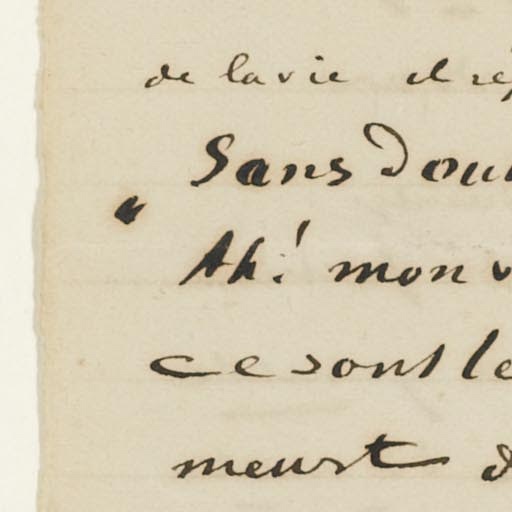 de la vie et ré
Sans dou
Ah! mon v
ce sont le
meurt d